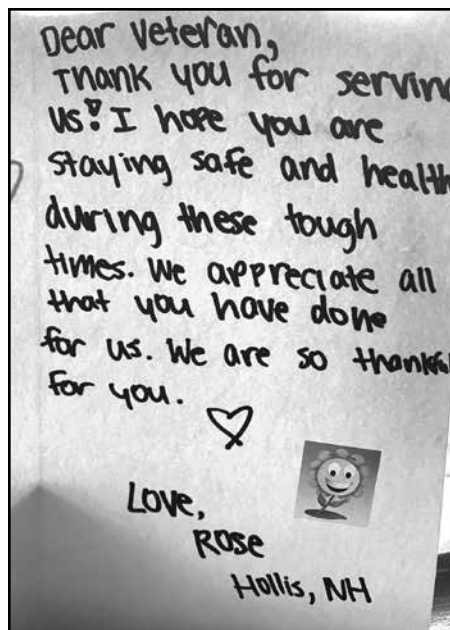 Dear Veteran,
Thank you for serving
us! I hope you are
staying safe and health
during these tough
times. We appreciate all
that you have done
for us. We are so thankful
for you.
Love,
Rose
Hollis, NH